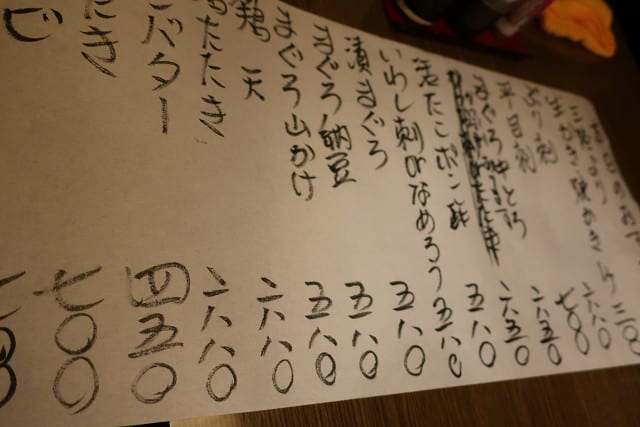 本日のおす
生かき 焼かき 1ケ 三
六八〇
ぶり刺 七〇〇
平目刺 六五〇
まぐろ中とろ 六五〇
活たこポン酢 五八〇
いわし刺 or なめろう 五八〇
漬まぐろ 五八〇
まぐろ納豆 五八〇
まぐろ山かけ 五八〇
鶏天 六八〇
たたき 六八〇
バター 四五〇
たき 七〇〇
じ